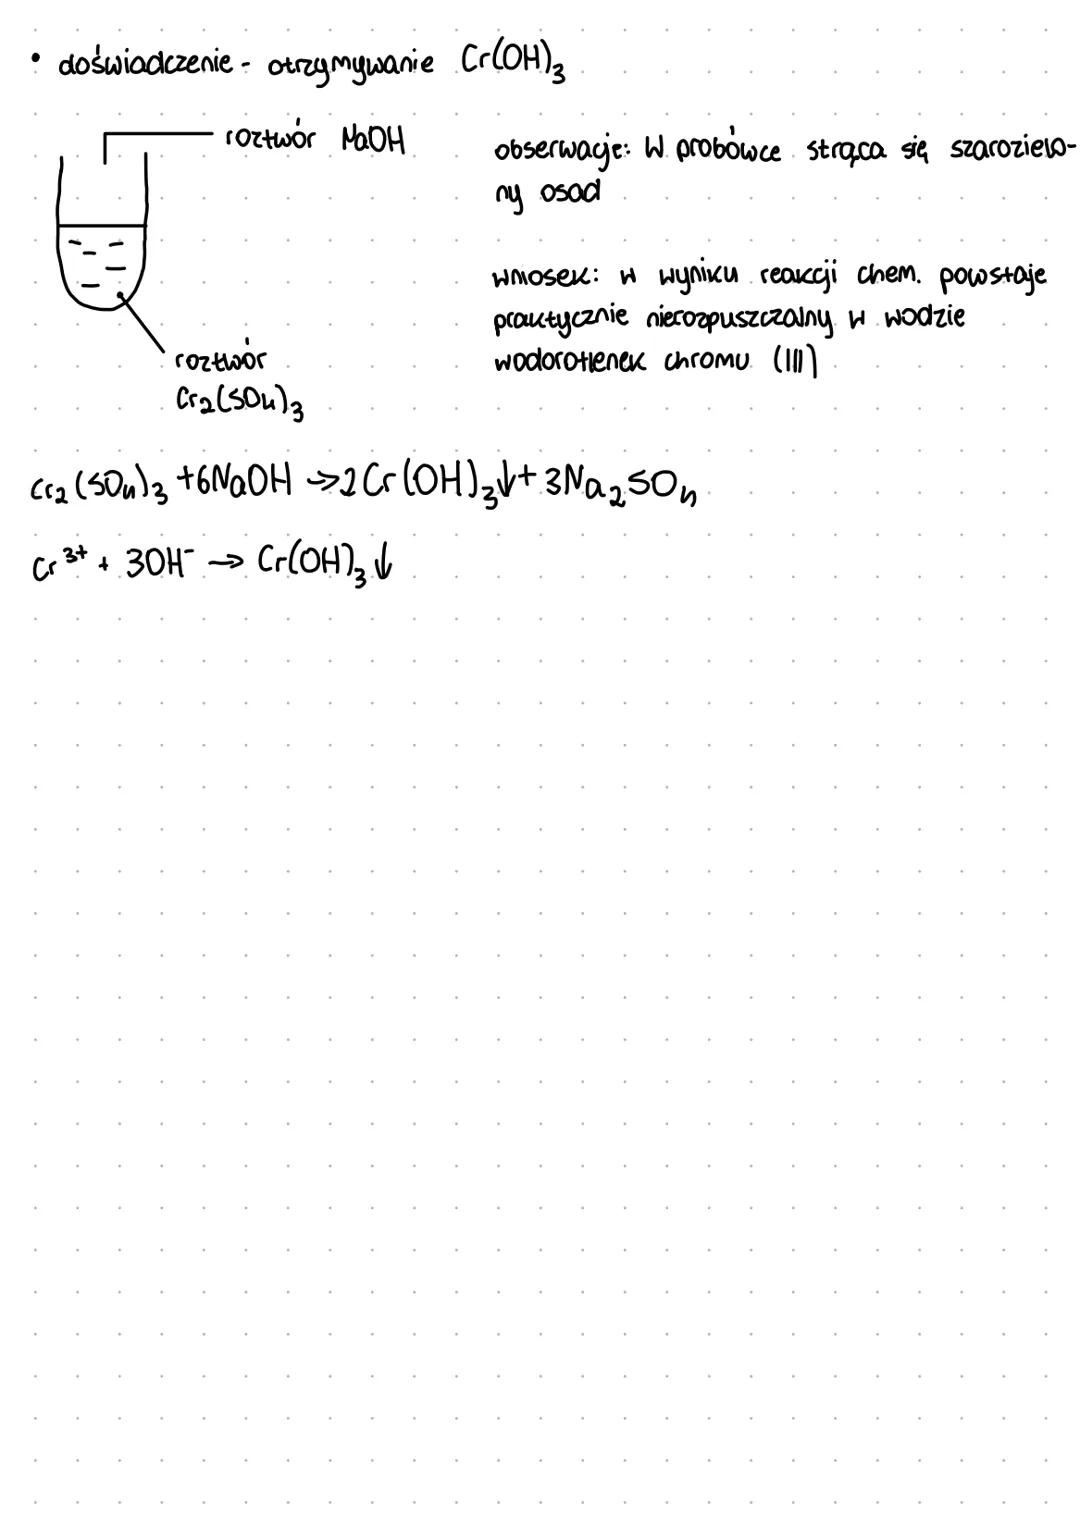 • doświadczenie - otrzymywanie Cr(OH)₃
roztwór NaOH
roztwór
Cr₂(SO₄)₃
obserwacje: W probówce strąca się szarozielo-
ny osad
wniosek: w wyniku reakcji chem. powstaje
praktycznie nierozpuszczalny w wodzie
wodorotlenek chromu (III)
Cr₂(SO₄)₃ + 6NaOH → 2Cr(OH)₃↓ + 3Na₂SO₄
Cr³⁺ + 3OH⁻ → Cr(OH)₃↓